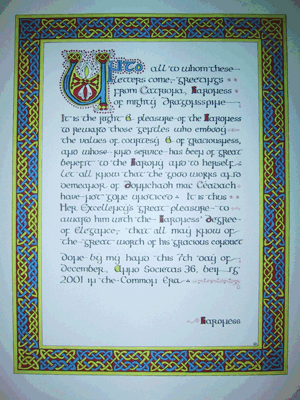 Unto all to whom these
letters come, greetings
from Catriona, Baroness
of mighty Dragonsspine
It is the right & pleasure of the Baroness
to reward those gentles who embody
the values of courtesy & of graciousness,
and whose kind service has been of great
benefit to the Barony and to herself.
Let all know that the good works and
demeanor of Domnhach mac Céadach
have not gone unnoticed It is thus
Her Excellency's great pleasure to
award him with the Baroness' Degree
of Elegance, that all may know of
the great worth of his gracious conduct
Done by my hand this 7th day of
December, Anno Societas 36, being
2001 in the Common Era
Baroness